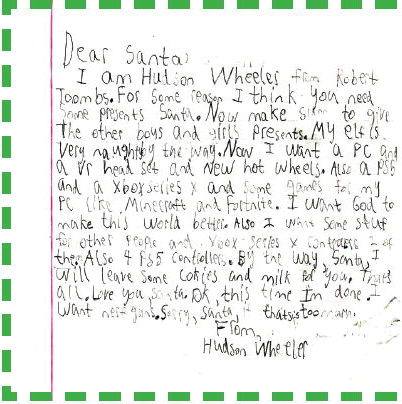 Dear Santa,
I am Hudson Wheeler from Robert
Toombs. For some reason I think you need
some presents Santa. Now make sure to give
The other boys and girls presents. My elf is
very naughty by the way. Now I want a PC and
a Vr head set and New hot wheels. Also a PS5
and a Xbox series x and some games for my
PC like Minecraft and Fortnite. I want God to
make this world better. Also I want some stuf
for other people and Xbox series x 2 of
them. Also 4 PS5 controllers. By the way, Santa, I
will leave some Cookies and milk for you. Thats
all. Love you santa. Ok, this time Im done. I
want nerf guns. Sorry, santa, if thats too
From,
Hudson Wheeler